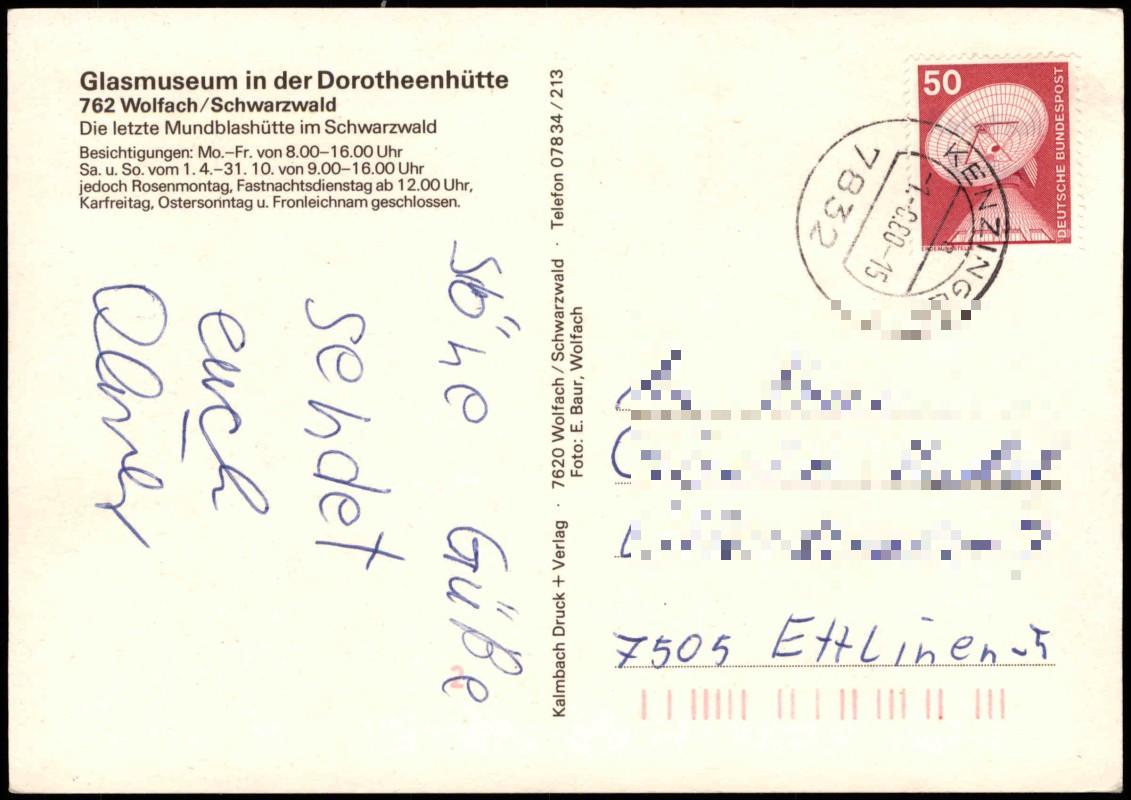 Glasmuseum in der Dorotheenhütte
762 Wolfach/Schwarzwald
Die letzte Mundblashütte im Schwarzwald
Besichtigungen: Mo.–Fr. von 8.00–16.00 Uhr
Sa. u. So. vom 1. 4.–31. 10. von 9.00–16.00 Uhr
jedoch Rosenmontag, Fastnachtsdienstag ab 12.00 Uhr,
Karfreitag, Ostersonntag u. Fronleichnam geschlossen.
Söhe Güße
sehdet
euch
Kalmbach Druck + Verlag · 7620 Wolfach/Schwarzwald · Telefon 07834/213
Foto: E. Baur, Wolfach
50
DEUTSCHE BUNDESPOST
7832
80-15
2
7505 Ettlinen-5